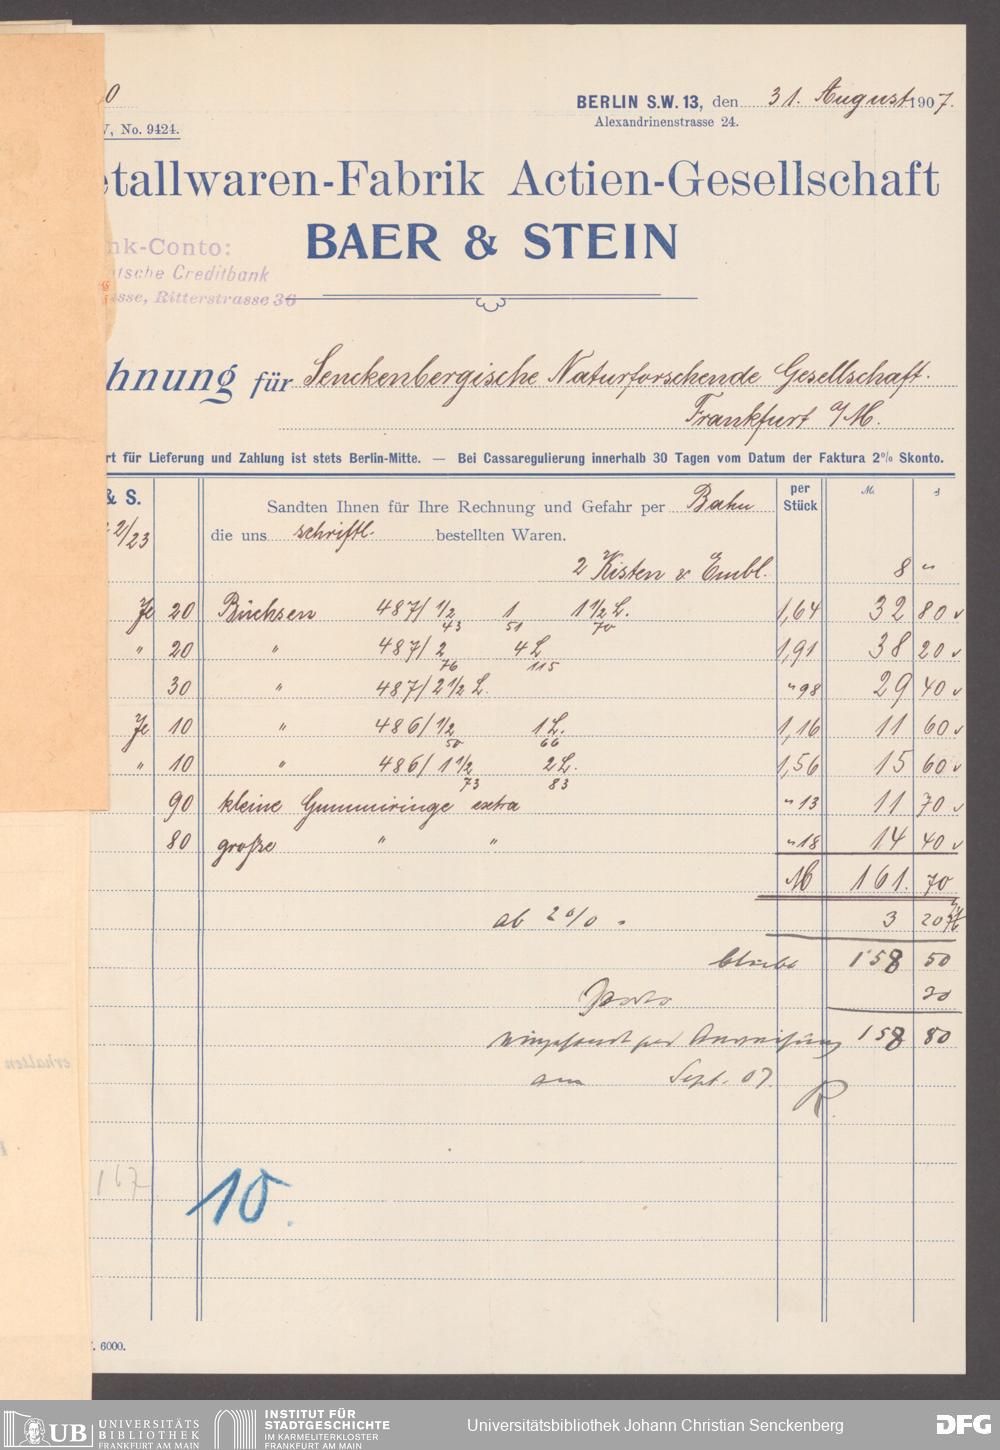 0
V, No. 9424.
BERLIN S.W. 13, den 31. August 1907.
Alexandrinenstrasse 24.
etallwaren-Fabrik Actien-Gesellschaft
BAER & STEIN
nk-Conto:
utsche Creditbank
asse, Ritterstrasse 36
hnung für Senckenbergische Naturforschende Gesellschaft.
Frankfurt a/M.
rt für Lieferung und Zahlung ist stets Berlin-Mitte. — Bei Cassaregulierung innerhalb 30 Tagen vom Datum der Faktura 2% Skonto.
& S. per Stück M. ₰
Sandten Ihnen für Ihre Rechnung und Gefahr per Bahn
2/23 die uns schriftl. bestellten Waren.
2 Kisten & Embl. 8 "
Je 20 Büchsen 487/ 1/2 1 1 1/2 L. 1,64 32 80
43 51 70
" 20 " 487/ 2 4 L 1,91 38 20
76 115
30 " 487/ 2 1/2 L. " 98 29 40
Je 10 " 486/ 1/2 1 L. 1,16 11 60
50 66
" 10 " 486/ 1 1/2 2 L. 1,56 15 60
73 83
90 kleine Gummiringe extra " 13 11 70
80 große " " " 18 14 40
M 161. 70
ab 2% 3 20
bleibt 158 50
Porto 30
eingesandt per Anweisung 158 80
am Sept. 07.
R
167
10.
erhalten
. 6000.
UB UNIVERSITÄTS BIBLIOTHEK FRANKFURT AM MAIN
INSTITUT FÜR STADTGESCHICHTE IM KARMELITERKLOSTER FRANKFURT AM MAIN
Universitätsbibliothek Johann Christian Senckenberg
DFG